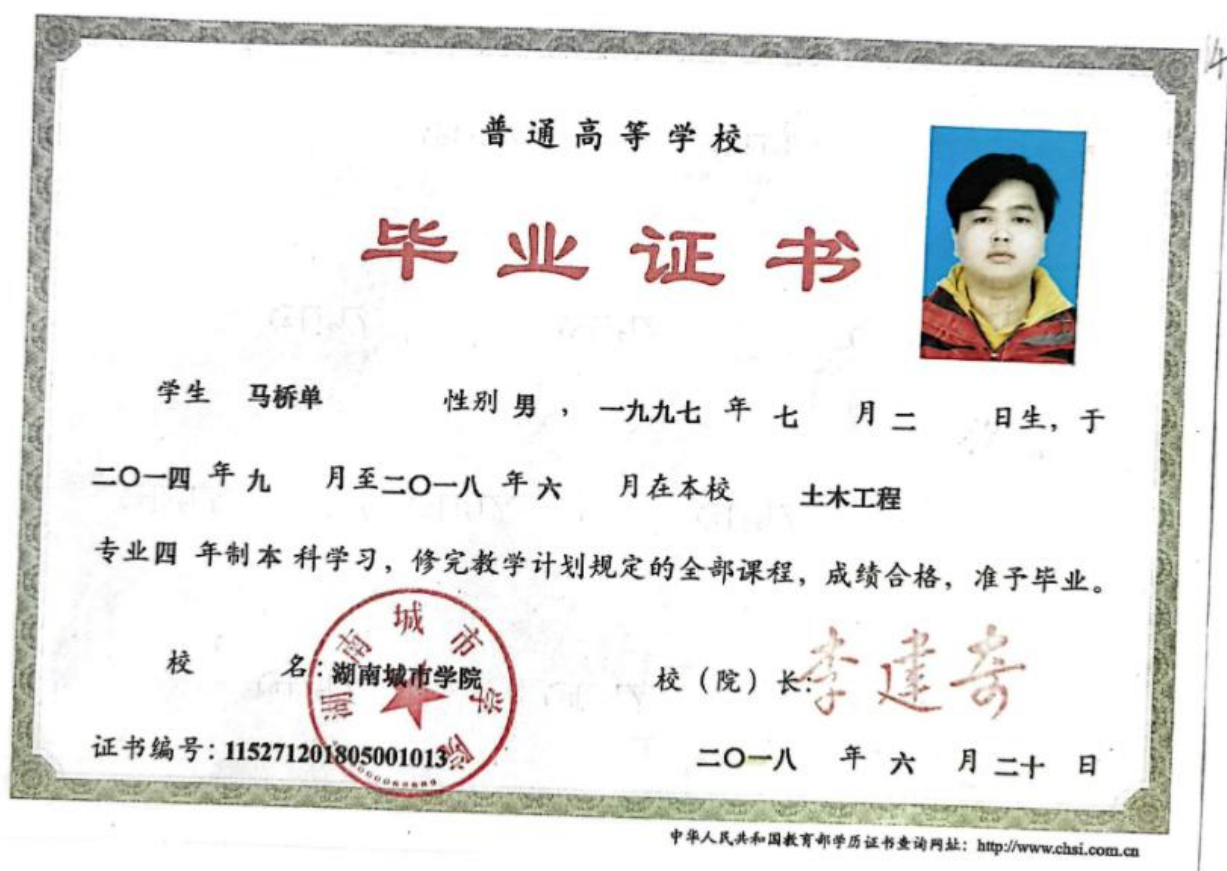 普通高等学校
毕业证书
学生 马桥单 性别 男 , 一九九七 年 七 月 二 日生, 于
二〇一四 年 九 月至 二〇一八 年 六 月在本校 土木工程
专业 四 年制 本 科学习, 修完教学计划规定的全部课程, 成绩合格, 准予毕业。
校 名: 湖南城市学院 校(院)长: 李建奇
湖南城市学院
证书编号: 115271201805001013 二〇一八 年 六 月 二十 日
中华人民共和国教育部学历证书查询网址: http://www.chsi.com.cn